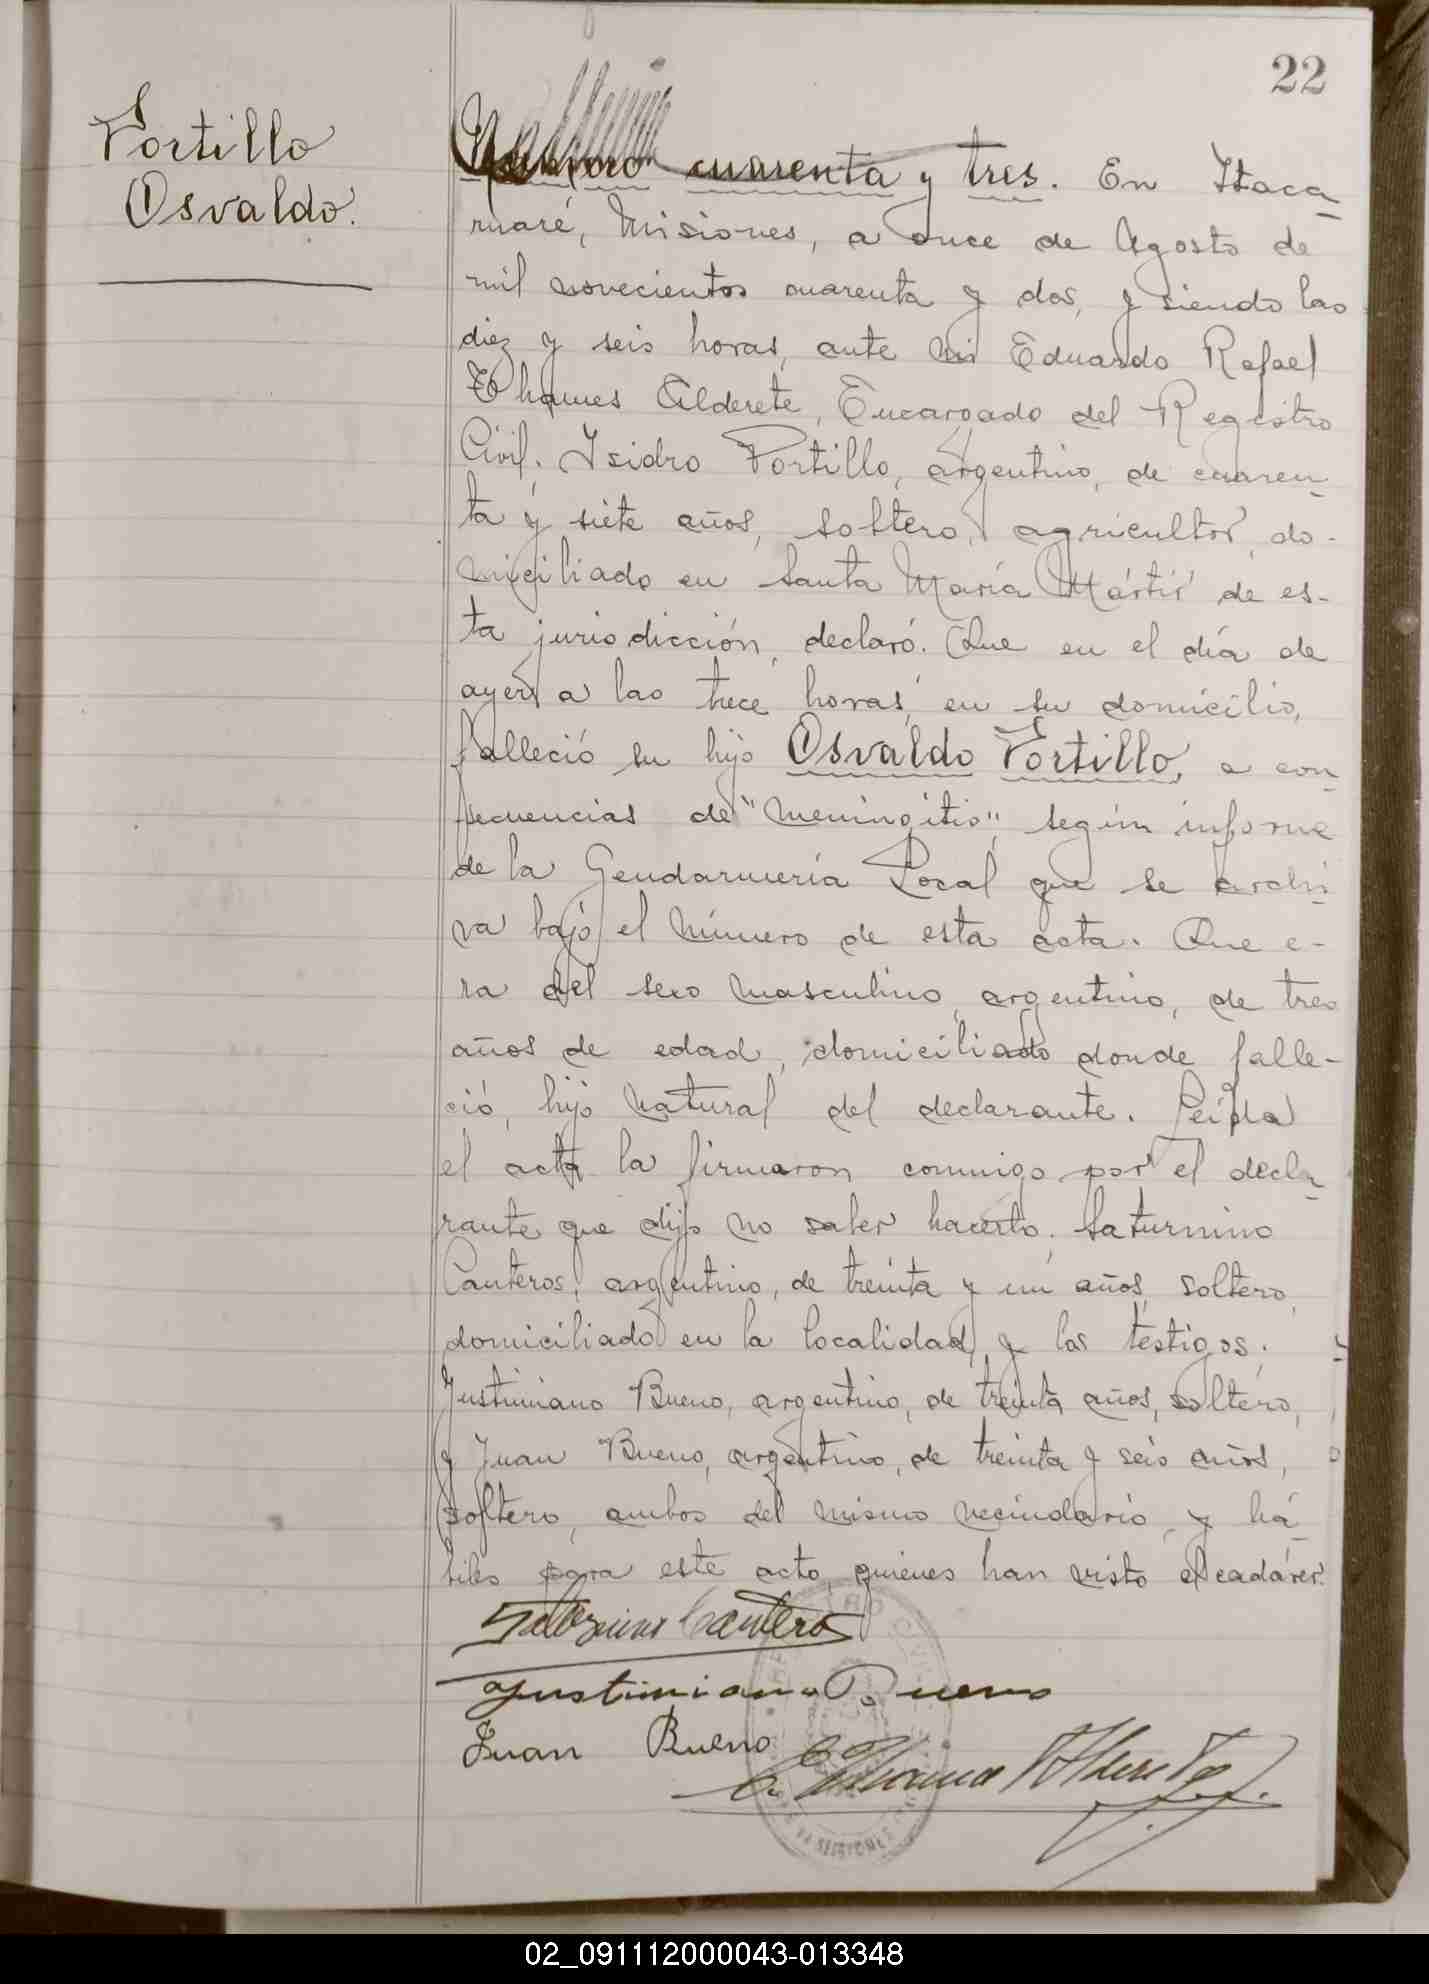 22
Portillo
Osvaldo.
Número cuarenta y tres. En Itaca-
ruaré, Misiones, a once de Agosto de
mil novecientos cuarenta y dos, y siendo las
diez y seis horas, ante mi Eduardo Rafael
Thames Alderete, Encargado del Registro
Civil. Isidro Portillo, argentino, de cuaren-
ta y siete años, soltero, agricultor, do-
miciliado en Santa María Mártir de es-
ta jurisdicción, declaró. Que en el día de
ayer a las trece horas, en su domicilio,
falleció su hijo Osvaldo Portillo, a con-
secuencias de "meningitis", según informe
de la Gendarmería Local que se archi-
va bajo el número de esta acta. Que e-
ra del sexo masculino, argentino, de tres
años de edad, domiciliado donde falle-
ció, hijo natural del declarante. Leída
el acta la firmaron conmigo por el decla-
rante que dijo no saber hacerlo. Saturnino
Canteros, argentino, de treinta y un años, soltero,
domiciliado en la localidad y los testigos.
Justiniano Bueno, argentino, de treinta años, soltero,
y Juan Bueno, argentino, de treinta y seis años,
soltero, ambos del mismo vecindario, y há-
biles para este acto, quienes han visto el cadáver.
Saturnino Cantero
Justiniano Bueno
Juan Bueno
E. Thames Alderete
02_091112000043-013348